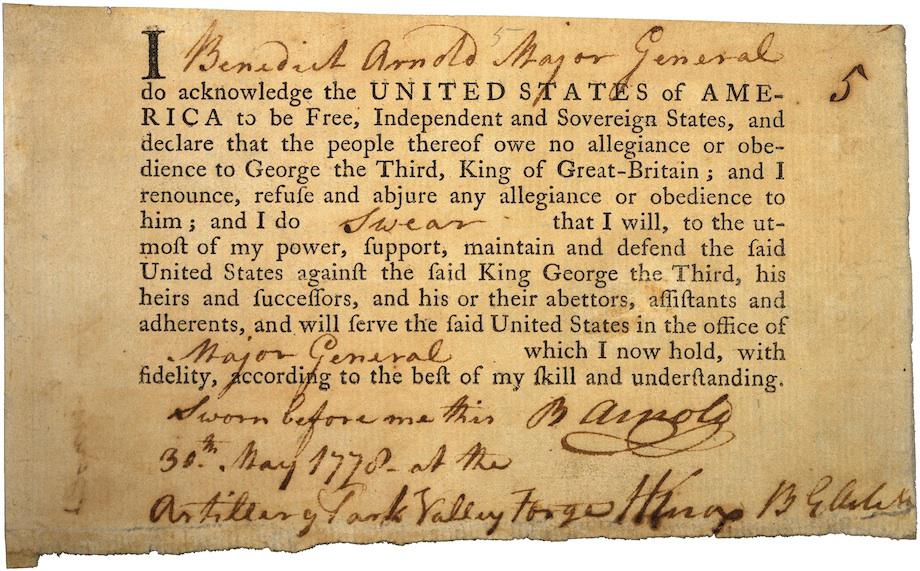 I Benedict Arnold Major General
5
5
do acknowledge the UNITED STATES of AME-
RICA to be Free, Independent and Sovereign States, and
declare that the people thereof owe no allegiance or obe-
dience to George the Third, King of Great-Britain; and I
renounce, refuſe and abjure any allegiance or obedience to
him; and I do Swear that I will, to the ut-
moſt of my power, ſupport, maintain and defend the ſaid
United States againſt the ſaid King George the Third, his
heirs and ſucceſſors, and his or their abettors, aſſiſtants and
adherents, and will ſerve the ſaid United States in the office of
Major General which I now hold, with
fidelity, according to the beſt of my ſkill and underſtanding.
Sworn before me this B Arnold
30th. May 1778 - at the
Artillery Park Valley Forge HKnox B G